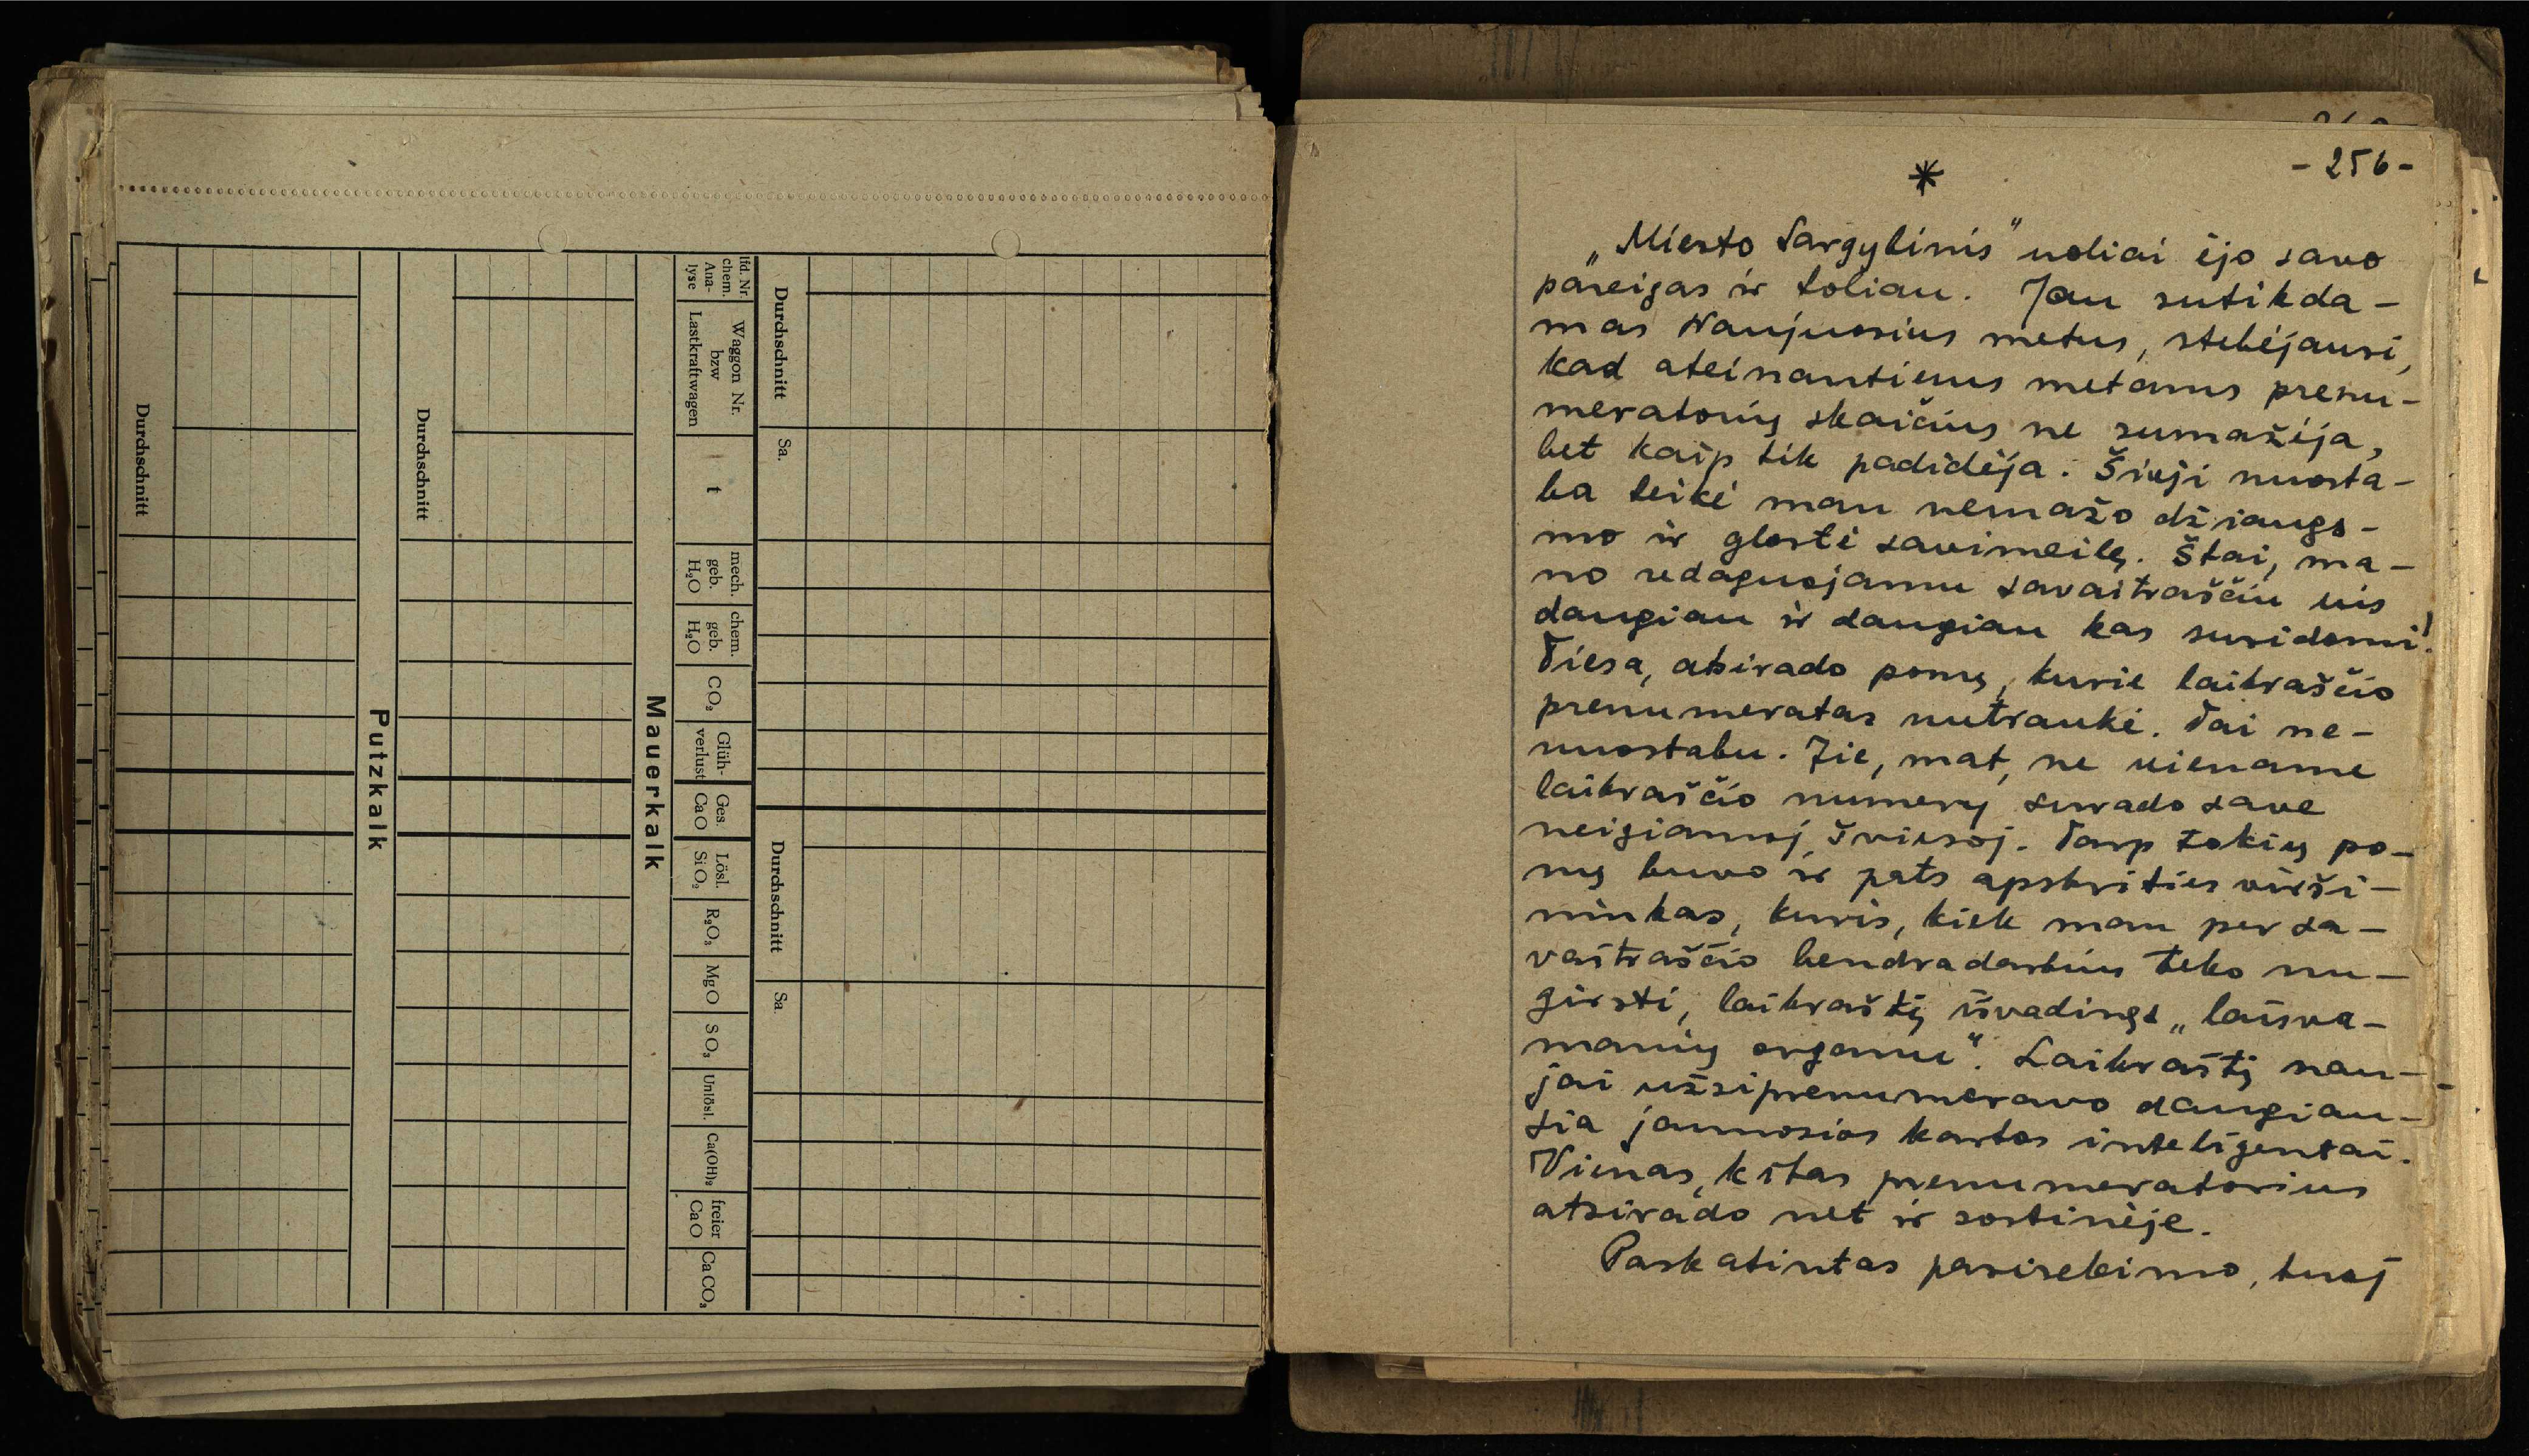 lfd. Nr. chem. Ana- lyse
Waggon Nr. bzw Lastkraftwagen
t
mech. geb. H₂O
chem. geb. H₂O
CO₂
Glüh- verlust
Ges. CaO
Lösl. SiO₂
R₂O₃
MgO
SO₃
Unlösl.
Ca(OH)₂
freier CaO
CaCO₃
Durchschnitt
Sa.
Durchschnitt
Sa.
Mauerkalk
Durchschnitt
Putzkalk
Durchschnitt
- 256 -
*
„Miesto Sargybinis" uoliai ėjo savo
pareigas ir toliau. Jau sutikda-
mas Naujuosius metus, stebėjausi,
kad ateinantiems metams prenu-
meratorių skaičius ne sumažėja,
bet kaip tik padidėja. Šioji nuosta-
ba teikė man nemažo džiaugs-
mo ir glostė savimeilę. Štai, ma-
no redaguojamu savaitraščiu vis
daugiau ir daugiau kas susidomi!
Tiesa, atsirado ponų, kurie laikraščio
prenumeratas nutraukė. Tai ne-
nuostabu. Jie, mat, ne viename
laikraščio numery surado save
neigiamoj šviesoj. Tarp tokių po-
nų buvo ir pats apskrities virši-
ninkas, kuris, kiek man per sa-
vaitraščio bendradarbius teko nu-
girsti, laikraštį išvadinęs „laisva-
manių organu". Laikraštį nau-
jai užsiprenumeravo daugiau-
sia jaunosios kartos inteligentai.
Vienas, kitas prenumeratorius
atsirado net ir sostinėje.
Paskatintas pasisekimo, tuoj